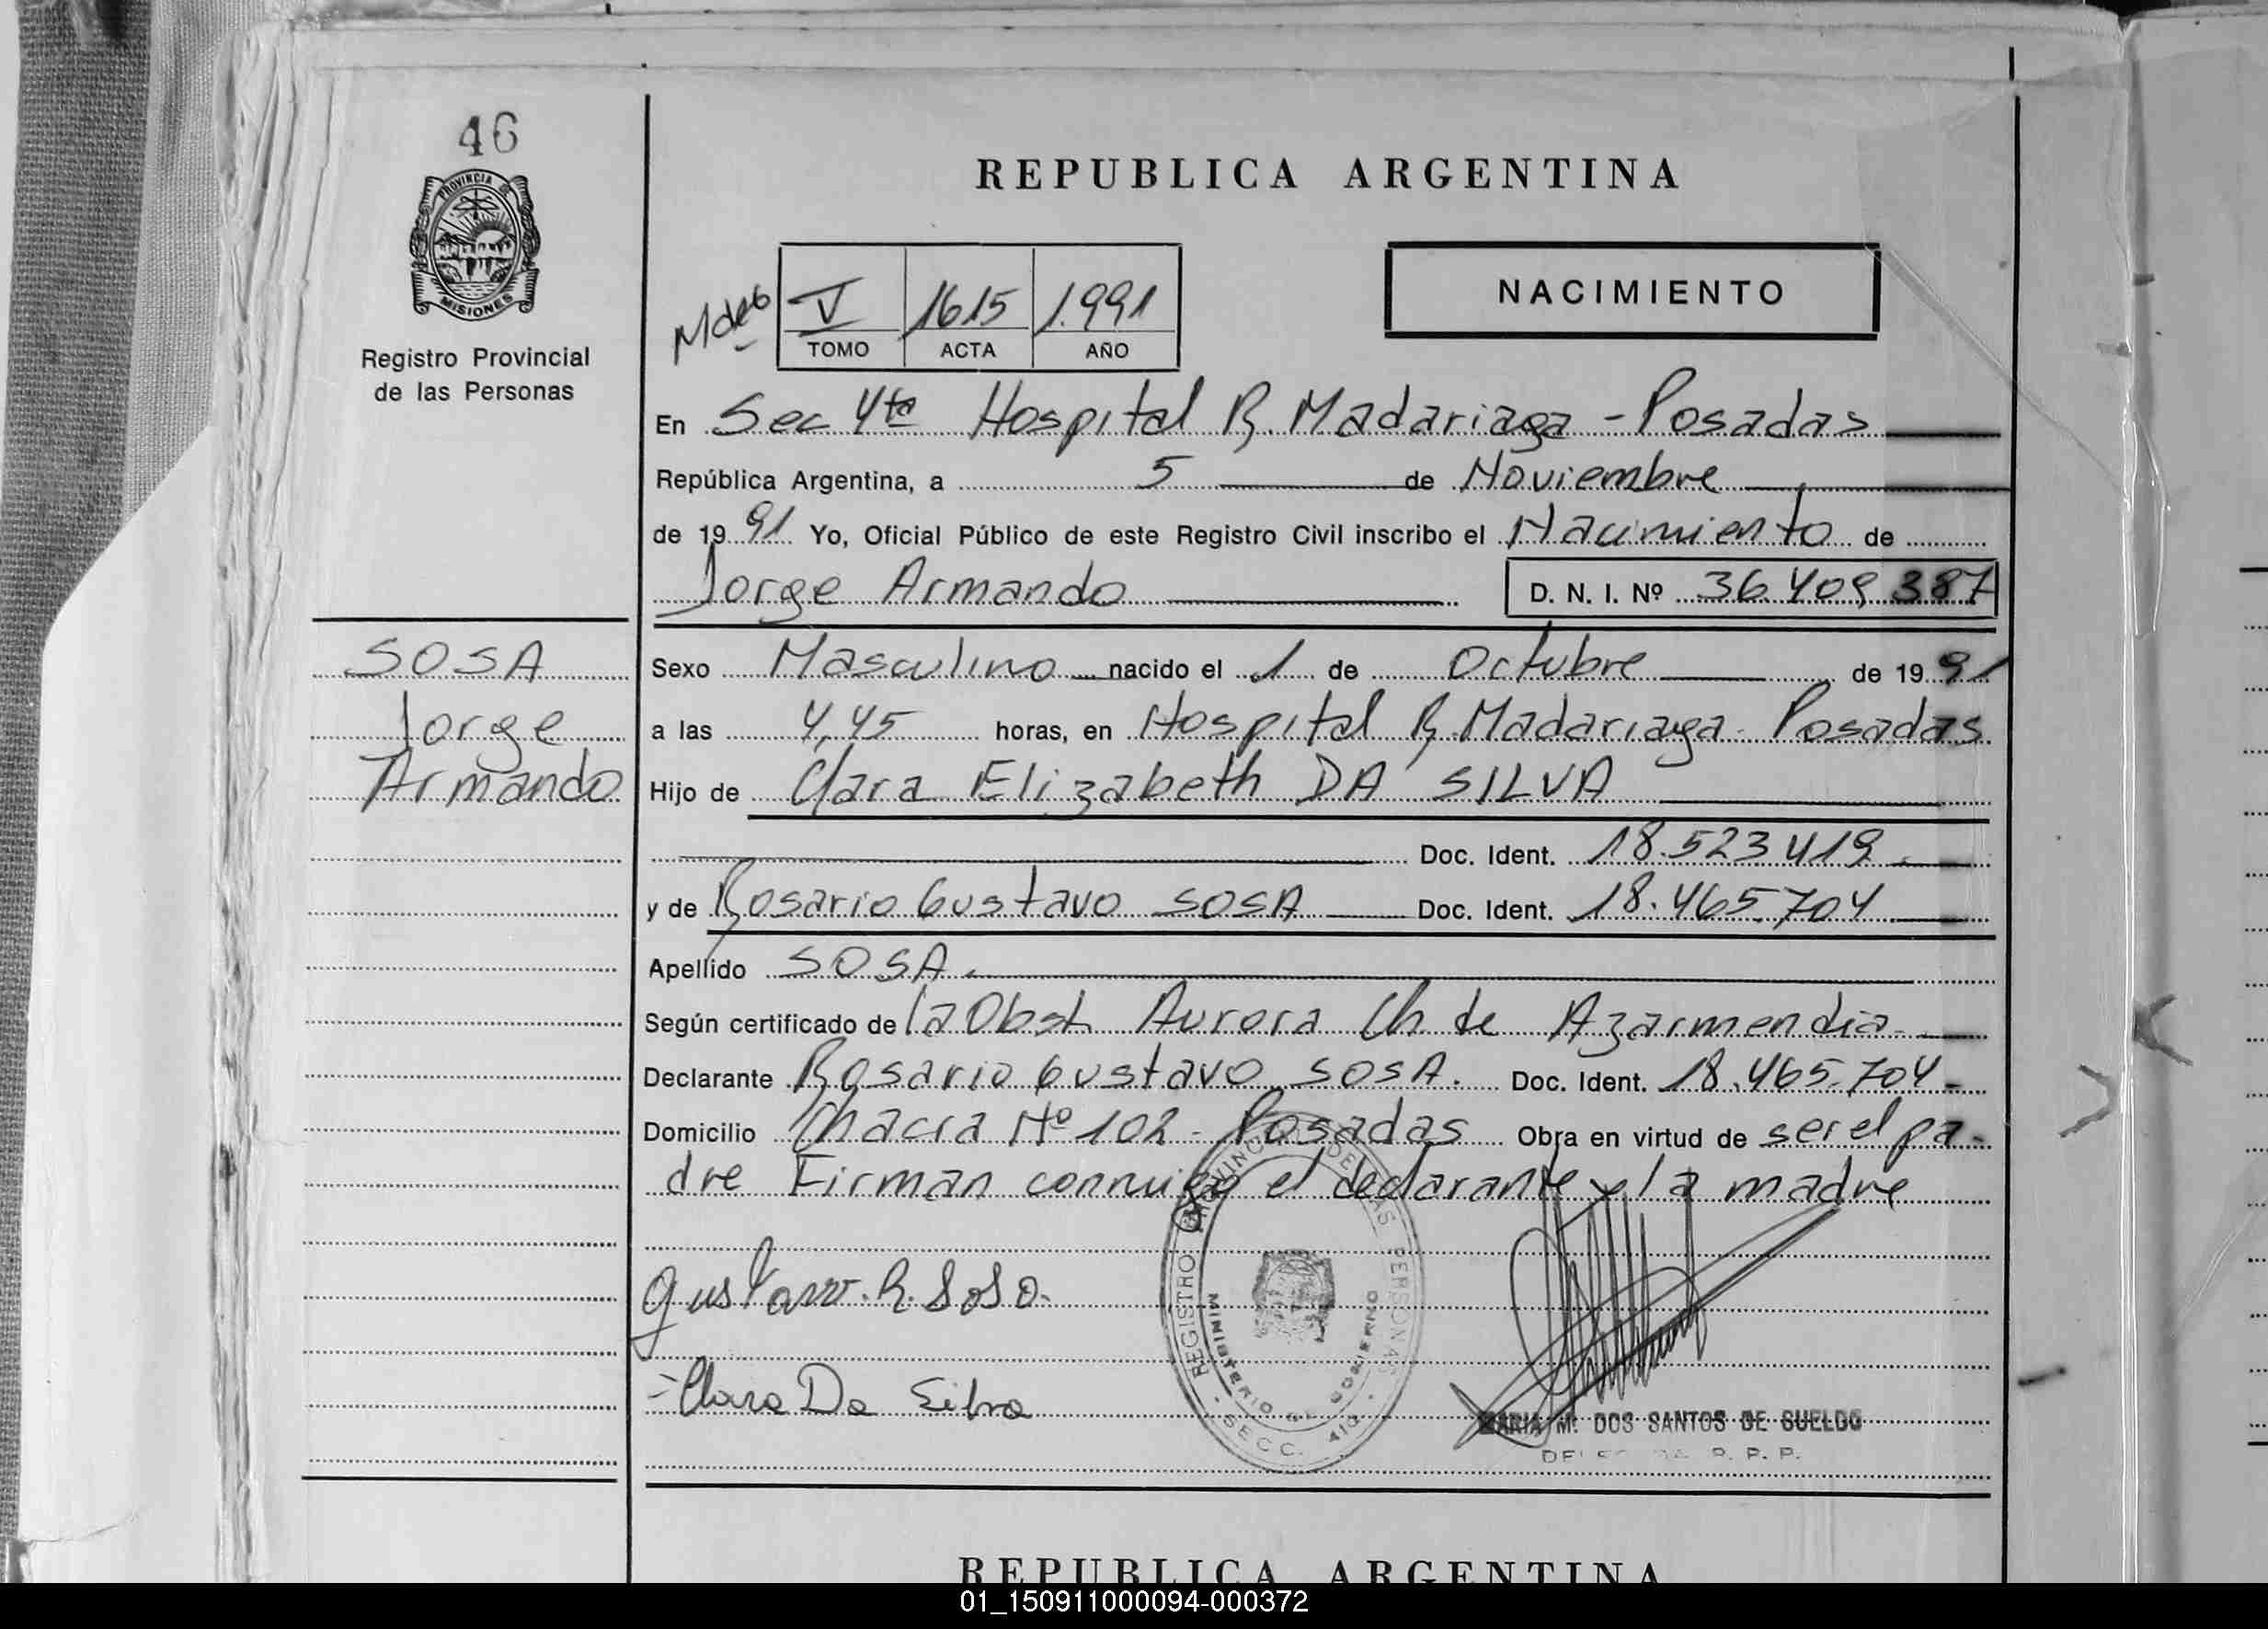 46
PROVINCIA DE
MISIONES
Registro Provincial
de las Personas
REPUBLICA ARGENTINA
V 1615 1.991
TOMO ACTA AÑO
NACIMIENTO
En Sec 4ta Hospital R. Madariaga - Posadas
República Argentina, a 5 de Noviembre
de 1991 Yo, Oficial Público de este Registro Civil inscribo el Nacimiento de
Jorge Armando D. N. I. Nº 36 409 387
SOSA
Jorge
Armando
Sexo Masculino nacido el 1 de Octubre de 1991
a las 4,45 horas, en Hospital R. Madariaga - Posadas
Hijo de Clara Elizabeth DA SILVA
Doc. Ident. 18.523 419.
y de Rosario Gustavo SOSA Doc. Ident. 18.465.704
Apellido SOSA.
Según certificado de la Obst Aurora Ch de Azarmendia
Declarante Rosario Gustavo SOSA. Doc. Ident. 18.465.704-
Domicilio Chacra Nº 102 - Posadas Obra en virtud de ser el pa-
dre Firman conmigo el declarante y la madre
Gustavo. R. Sosa.
Clara Da Silva
REGISTRO PROVINCIAL DE LAS PERSONAS
MINISTERIO DE GOBIERNO
- SECC. 4TA -
MARIA M. DOS SANTOS DE SUELDO
R. P. P.
REPUBLICA ARGENTINA
01_150911000094-000372